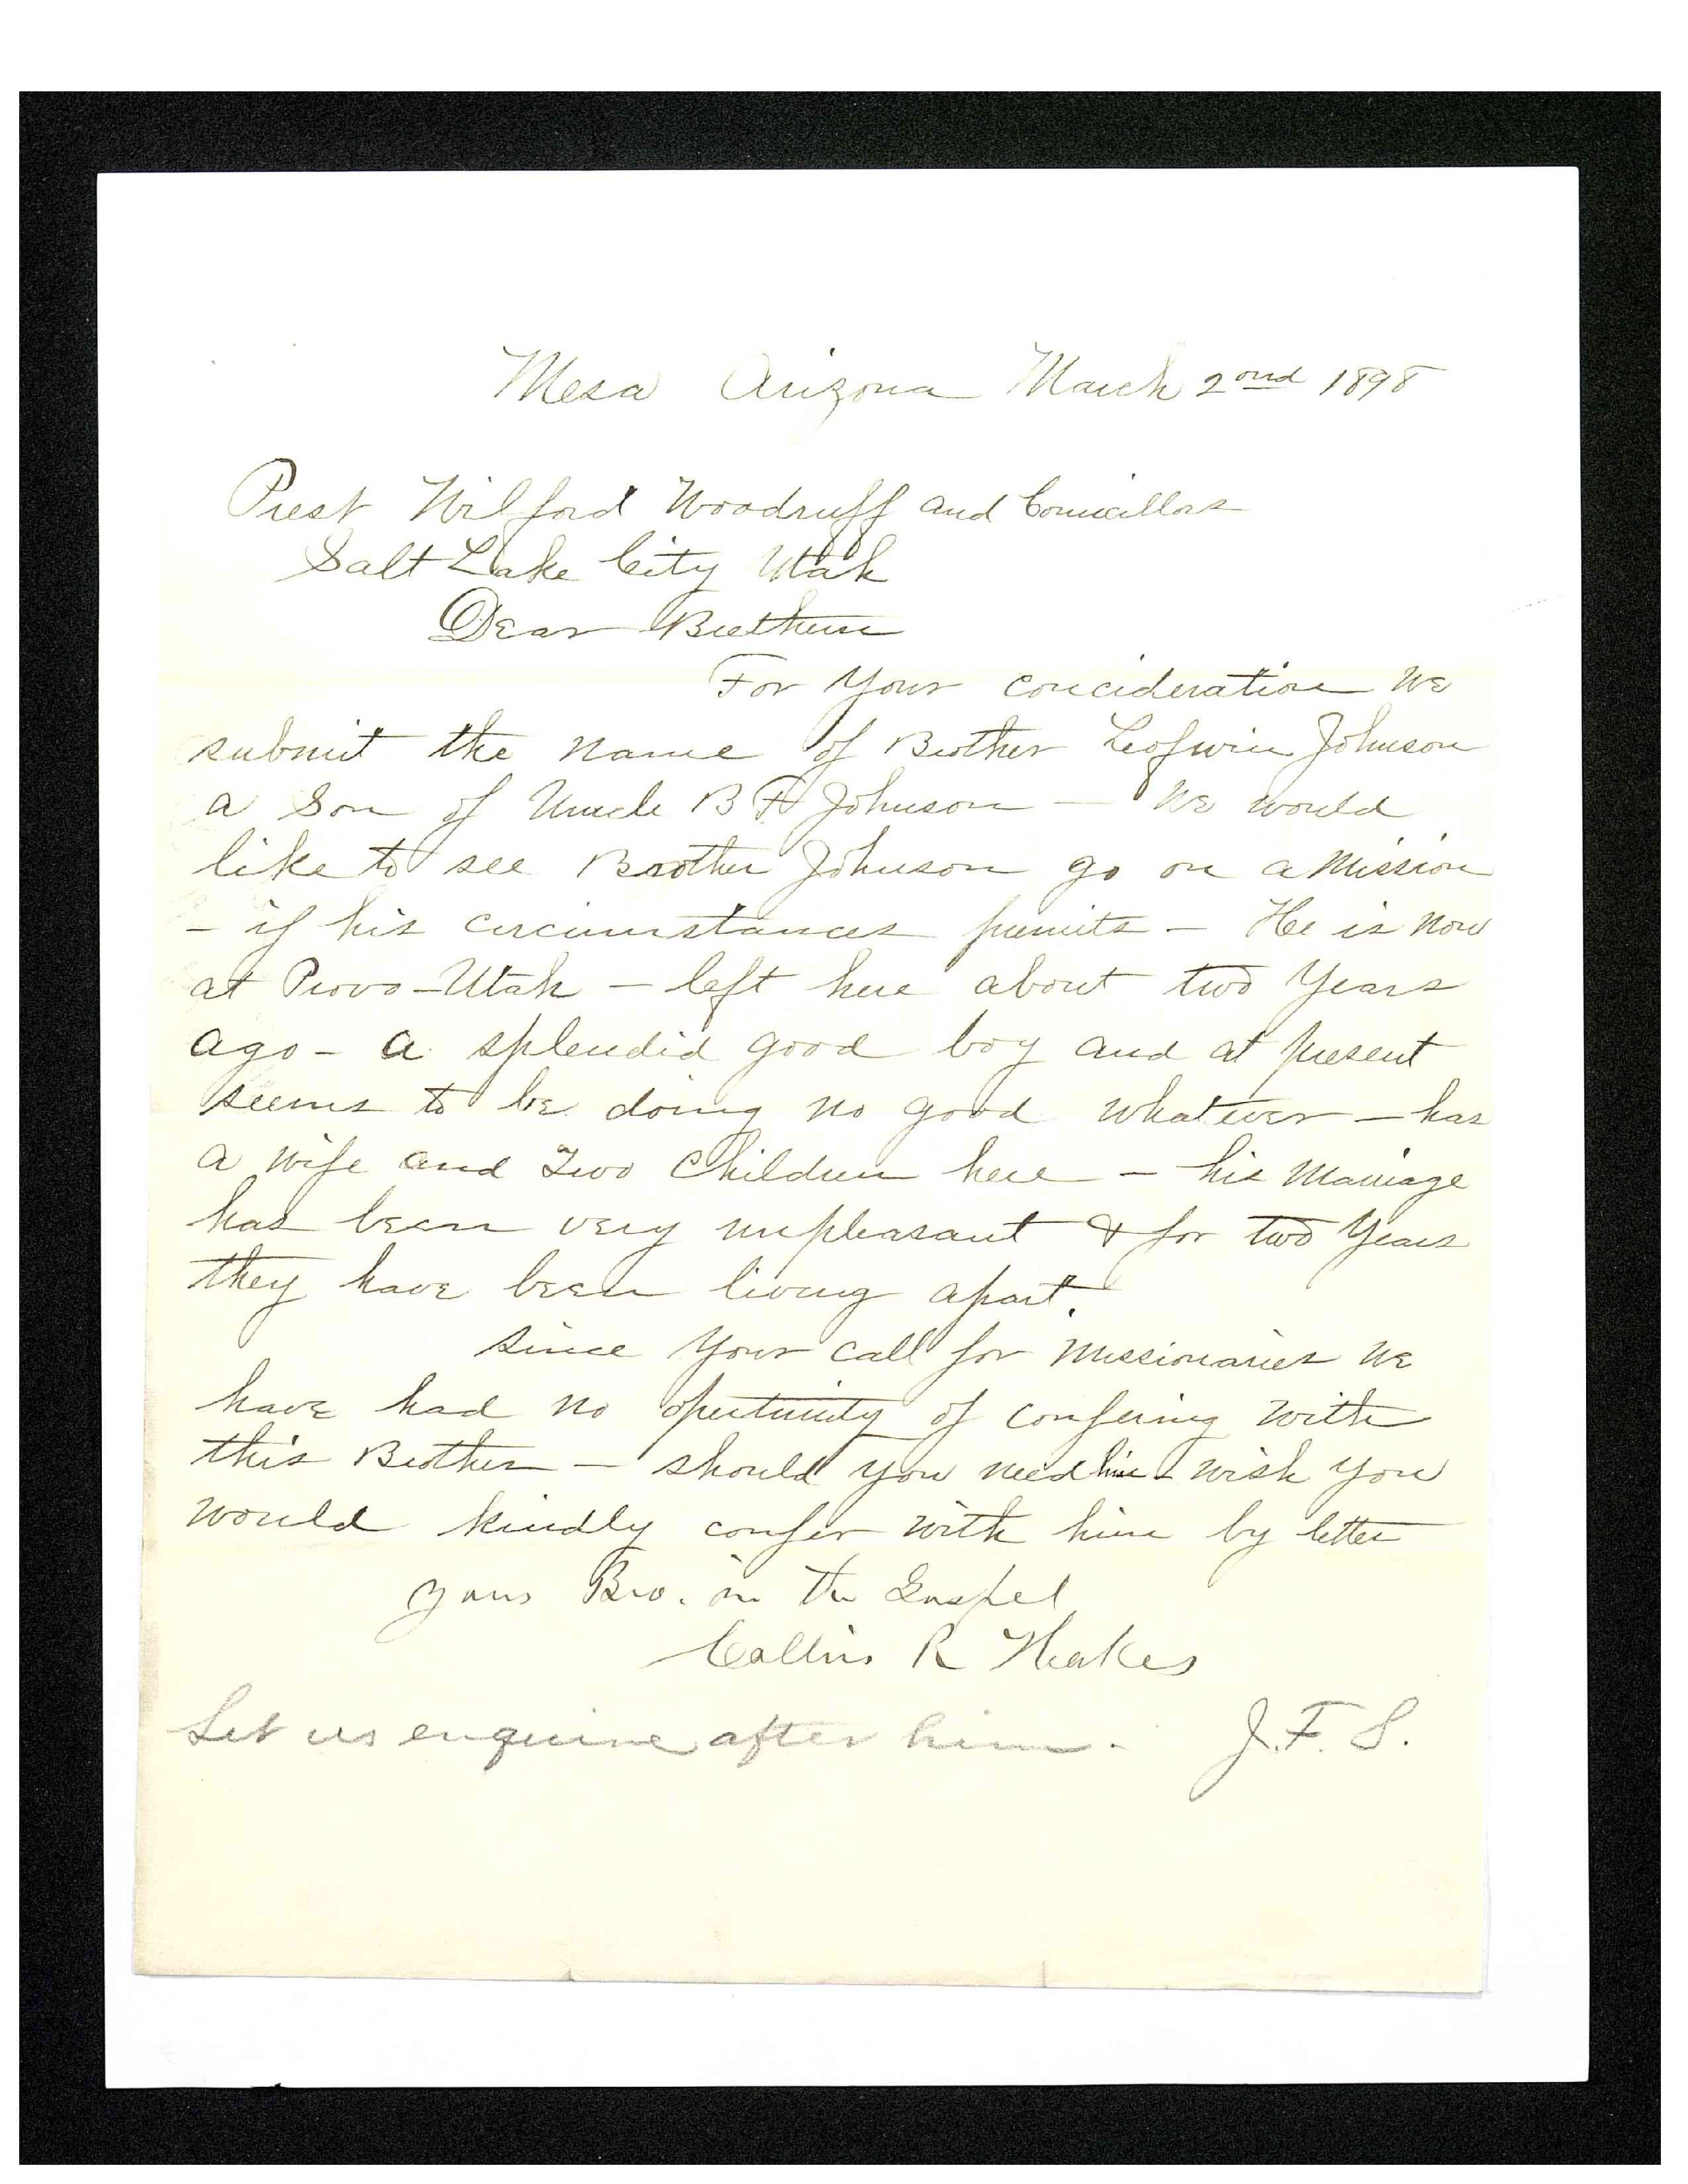 Mesa Arizona March 2ond 1898
Prest Wilford Woodruff and Councillors
Salt Lake City Utah
Dear Brethern
For Your concideration we
submit the name of Brother Leofwin Johnson
a Son of Uncle B F Johnson — We would
like to see Brother Johnson go on a Mission
- if his circumstances permits - He is now
at Provo - Utah - left here about two Years
ago - a splendid good boy and at present
seems to be doing no good whatever - has
a wife and Two Children here - his Marriage
has been very unpleasant & for two Years
they have been living apart.
Since Your call for Missionaries we
have had no opertunity of confering with
this Brother - should you need him wish you
would kindly confer with him by letter
Yours Bro. in the Gospel
Collins R Hakes
Let us enquire after him. J. F. S.